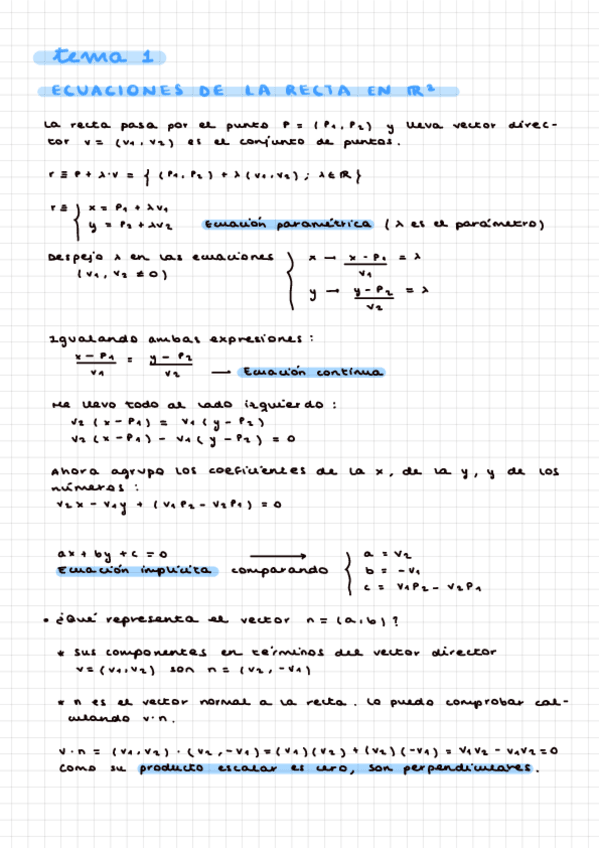 tema 1
ECUACIONES DE LA RECTA EN ℝ²
La recta pasa por el punto P = (P₁, P₂) y lleva vector direc-
tor v = (v₁, v₂) es el conjunto de puntos.
r ≡ P + λ·v = { (P₁, P₂) + λ(v₁, v₂) ; λ ∈ ℝ }
r ≡ { x = P₁ + λv₁
y = P₂ + λv₂ Ecuación paramétrica (λ es el parámetro)
Despejo λ en las ecuaciones { x → (x - P₁)/v₁ = λ
(v₁, v₂ ≠ 0) y → (y - P₂)/v₂ = λ
Igualando ambas expresiones:
(x - P₁)/v₁ = (y - P₂)/v₂ → Ecuación continua
Me llevo todo al lado izquierdo:
v₂(x - P₁) = v₁(y - P₂)
v₂(x - P₁) - v₁(y - P₂) = 0
Ahora agrupo los coeficientes de la x, de la y, y de los
números:
v₂x - v₁y + (v₁P₂ - v₂P₁) = 0
ax + by + c = 0 → { a = v₂
Ecuación implícita comparando b = -v₁
c = v₁P₂ - v₂P₁
• ¿Qué representa el vector n = (a, b)?
* sus componentes en términos del vector director
v = (v₁, v₂) son n = (v₂, -v₁)
* n es el vector normal a la recta. Lo puedo comprobar cal-
culando v·n.
v·n = (v₁, v₂) · (v₂, -v₁) = (v₁)(v₂) + (v₂)(-v₁) = v₁v₂ - v₁v₂ = 0
Como su producto escalar es cero, son perpendiculares.